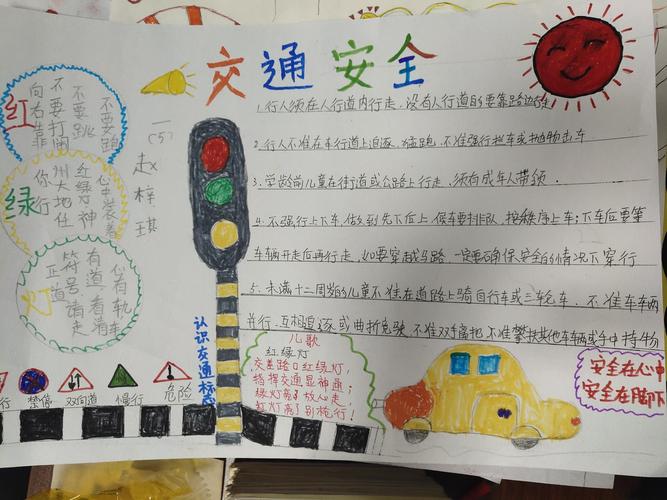 交通安全
1.行人须在人行道内行走,没有人行道的要靠路边行走
2.行人不准在车行道上追逐、猛跑,不准强行拦车或抛物击车
3.学龄前儿童在街道或公路上行走,须有成年人带领.
4.不强行上下车,做到先下后上,候车要排队,按秩序上车;下车后要等
车辆开走后再行走,如要穿越马路,一定要确保安全的情况下穿行
5.未满十二周岁的儿童不准在道路上骑自行车或三轮车.不准车车辆
并行、互相追逐或曲折竞驶,不准双手离把,不准攀扶其他车辆或手中持物
红
不要跑
不要跳
不要打闹
向右靠
绿
心中装着
红绿灯神
州大地任
你行
灯
心有轨车
有道看清
符号请走
正道
一(5)
赵梓琪
认识交通标志
儿歌
红绿灯
交差路口红绿灯,
指挥交通显神通;
绿灯亮了放心走,
红灯亮了别抢行!
行
禁停
双向道
慢行
危险
安全在心中
安全在脚下